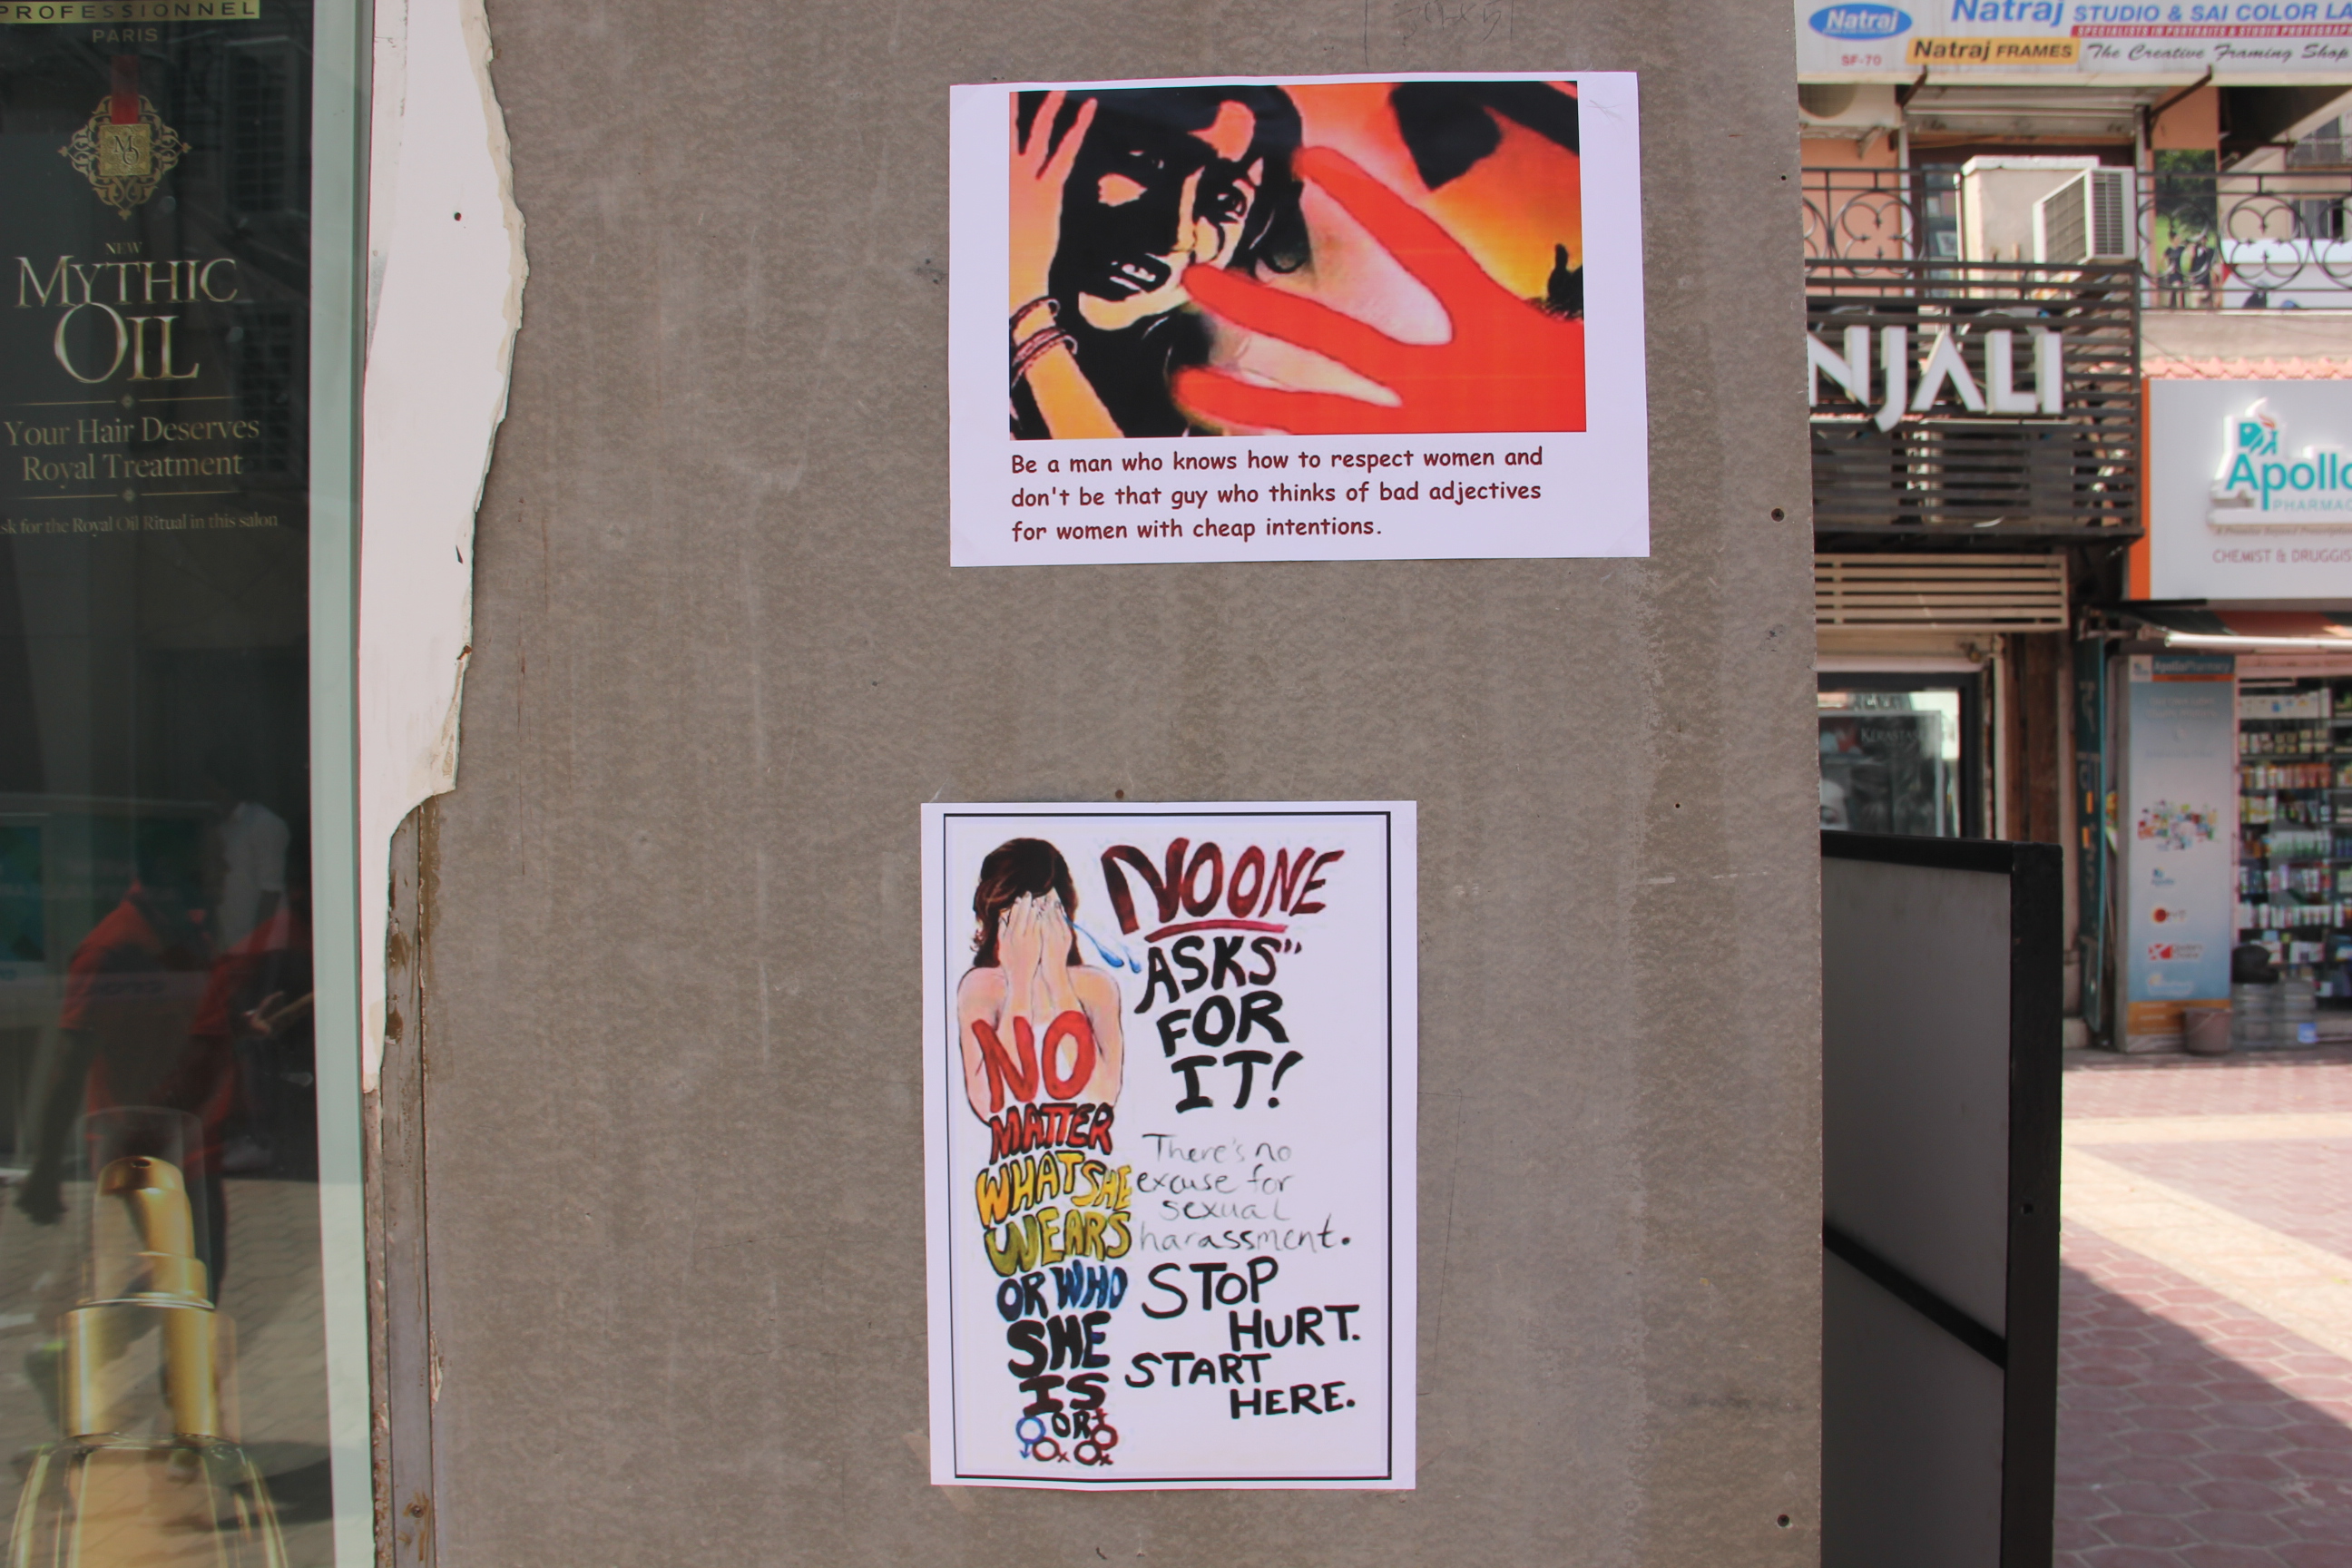 PROFESSIONNEL
PARIS
NEW
MYTHIC
OIL
Your Hair Deserves
Royal Treatment
for the Royal Oil Ritual in this salon
Be a man who knows how to respect women and
don't be that guy who thinks of bad adjectives
for women with cheap intentions.
NO ONE
ASKS"
FOR
IT!
NO
MATTER
WHAT SHE
WEARS
OR WHO
SHE
IS
OR
There's no
excuse for
sexual
harassment.
STOP
HURT.
START
HERE.
Natraj
SF-70
Natraj STUDIO & SAI COLOR LA
SPECIALISTS IN PORTRAITS & STUDIO PHOTOGRAP
Natraj FRAMES The Creative Framing Shop
NJALI
Apollo
PHARMAC
CHEMIST & DRUGGIS
KERASTAS